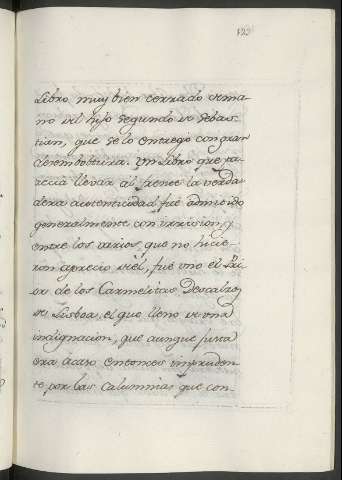 122
Libro muy bien cerrado de ma-
no del hijo segundo de Sebas-
tian, que se lo entregó con gran
desemboltura. Un libro que pa-
recia llevar al frente la verda-
dera autenticidad fué admitido
generalmente con irricion, y
entre los varios, que no hicie-
ron aprecio del, fué uno el Pri-
or de los Carmelitas Descalzos
de Lisboa, el que lleno de una
indignacion, que aunque justa
era acaso entonces impruden-
te por las calumnias que con-